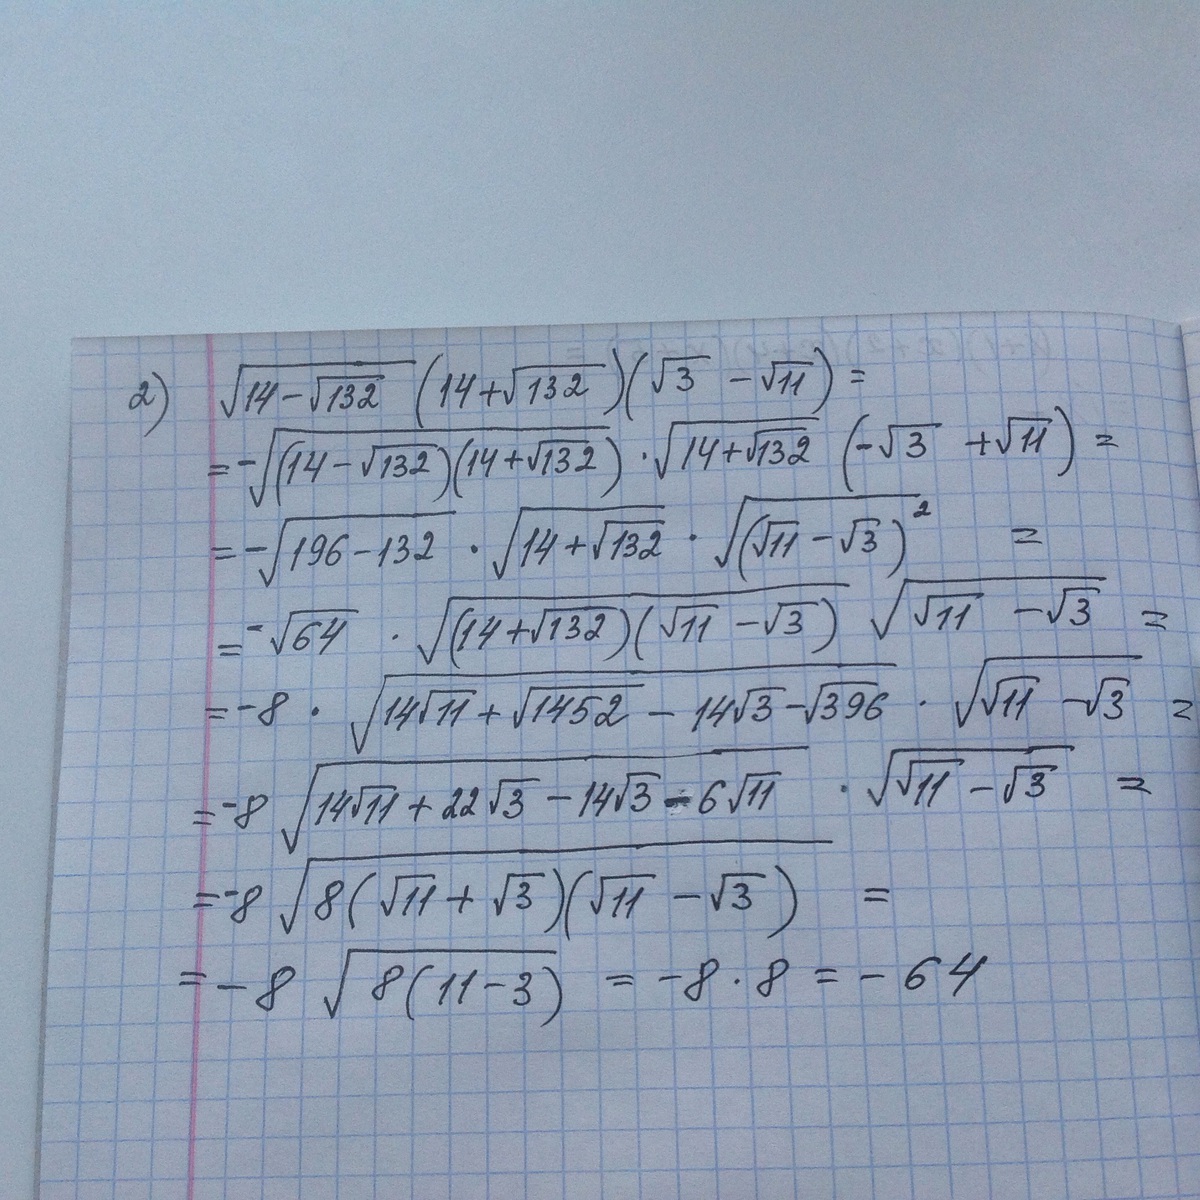 2) √(14-√132) (14+√132)(√3 -√11) =
= -√((14-√132)(14+√132)) · √(14+√132) (-√3 +√11) =
= -√(196-132) · √(14+√132) · √((√11-√3)²) =
= -√64 · √((14+√132)(√11-√3)) √(√11 -√3) =
= -8 · √(14√11+√1452 - 14√3-√396) · √(√11 -√3) =
= -8 √(14√11+22√3-14√3-6√11) · √(√11-√3) =
= -8 √(8(√11+√3)(√11-√3)) =
= -8 √(8(11-3)) = -8·8 = -64